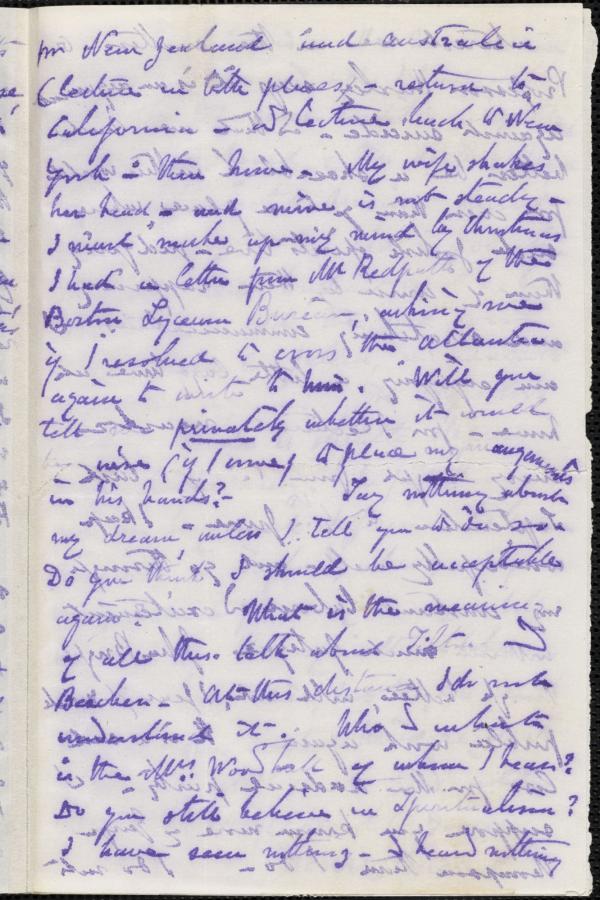 for New Zealand and Australia
(lecture in both places - return to
California - & lecture back to New
York - then home - My wife shakes
her head - and mine is not steady -
I must make up my mind by Christmas
I had a letter from Mr Redpath of the
Boston Lyceum Bureau, asking me
if I resolved to cross the Atlantic
again to write to him. Will you
tell privately whether it would
be wise (if I come) to place my arrangements
in his hands? - Say nothing about
my dream - unless I tell you to do so.
Do you think I should be acceptable
again? What is the meaning
of all this talk about Tilton &
Beecher - At this distance I do not
understand it -. Who & what
is the Mrs Woodhull of whom I hear?
Do you still believe in Spiritualism?
I have seen nothing - & heard nothing